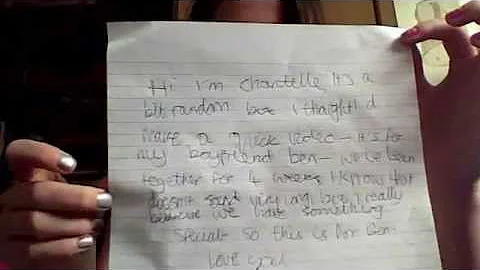 Hi I'm Chantelle, It's a
bit random but I thaight I'd
make a quick video - it's for
my boyfriend ben - we've been
together for 4 weeks I know that
doesn't sound very long but I really
believe we have something
special so this is for Ben.
love you